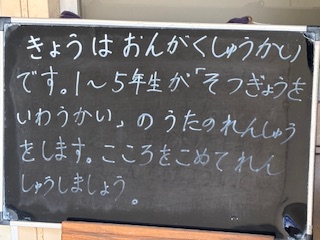 きょうはおんがくしゅうかい
です。1～5年生が「そつぎょうを
いわうかい」のうたのれんしゅう
をします。こころをこめてれん
しゅうしましょう。